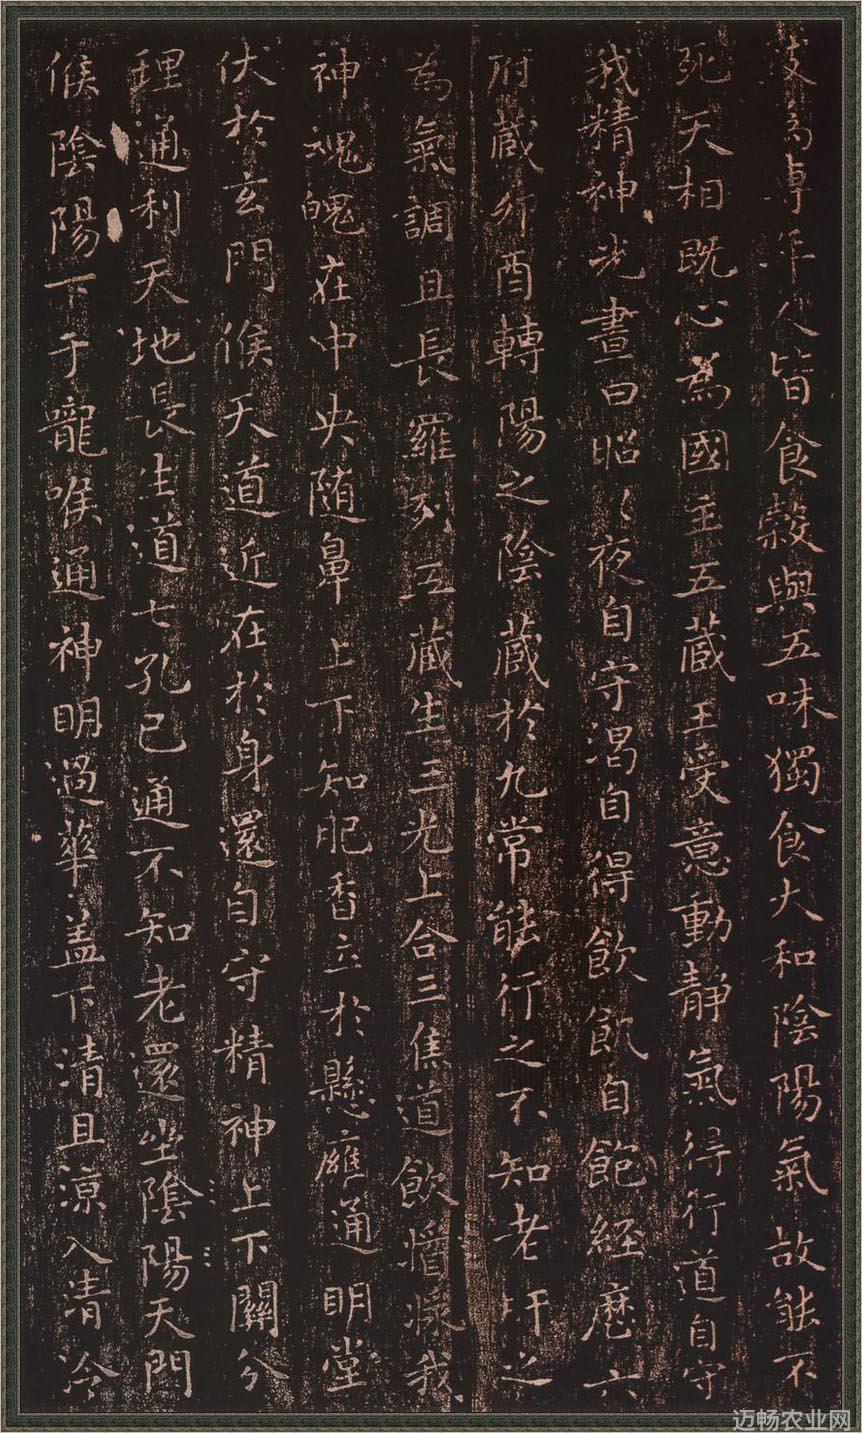 致為專年人皆食穀與五味獨食大和陰陽氣故能不
死天相既心為國主五藏王受意動静氣得行道自守
我精神光晝日昭〻夜自守渴自得飲飢自飽經歷六
府藏卯酉轉陽之陰藏於九常能行之不知老肝之
為氣調且長羅列五藏生三光上合三焦道飲醬漿我
神魂魄在中央随鼻上下知肥香立於懸廱通明堂
伏於玄門候天道近在於身還自守精神上下關分
理通利天地長生道七孔已通不知老還坐陰陽天門
候陰陽下于嚨喉通神明過華盖下清且涼入清泠
迈畅农业网